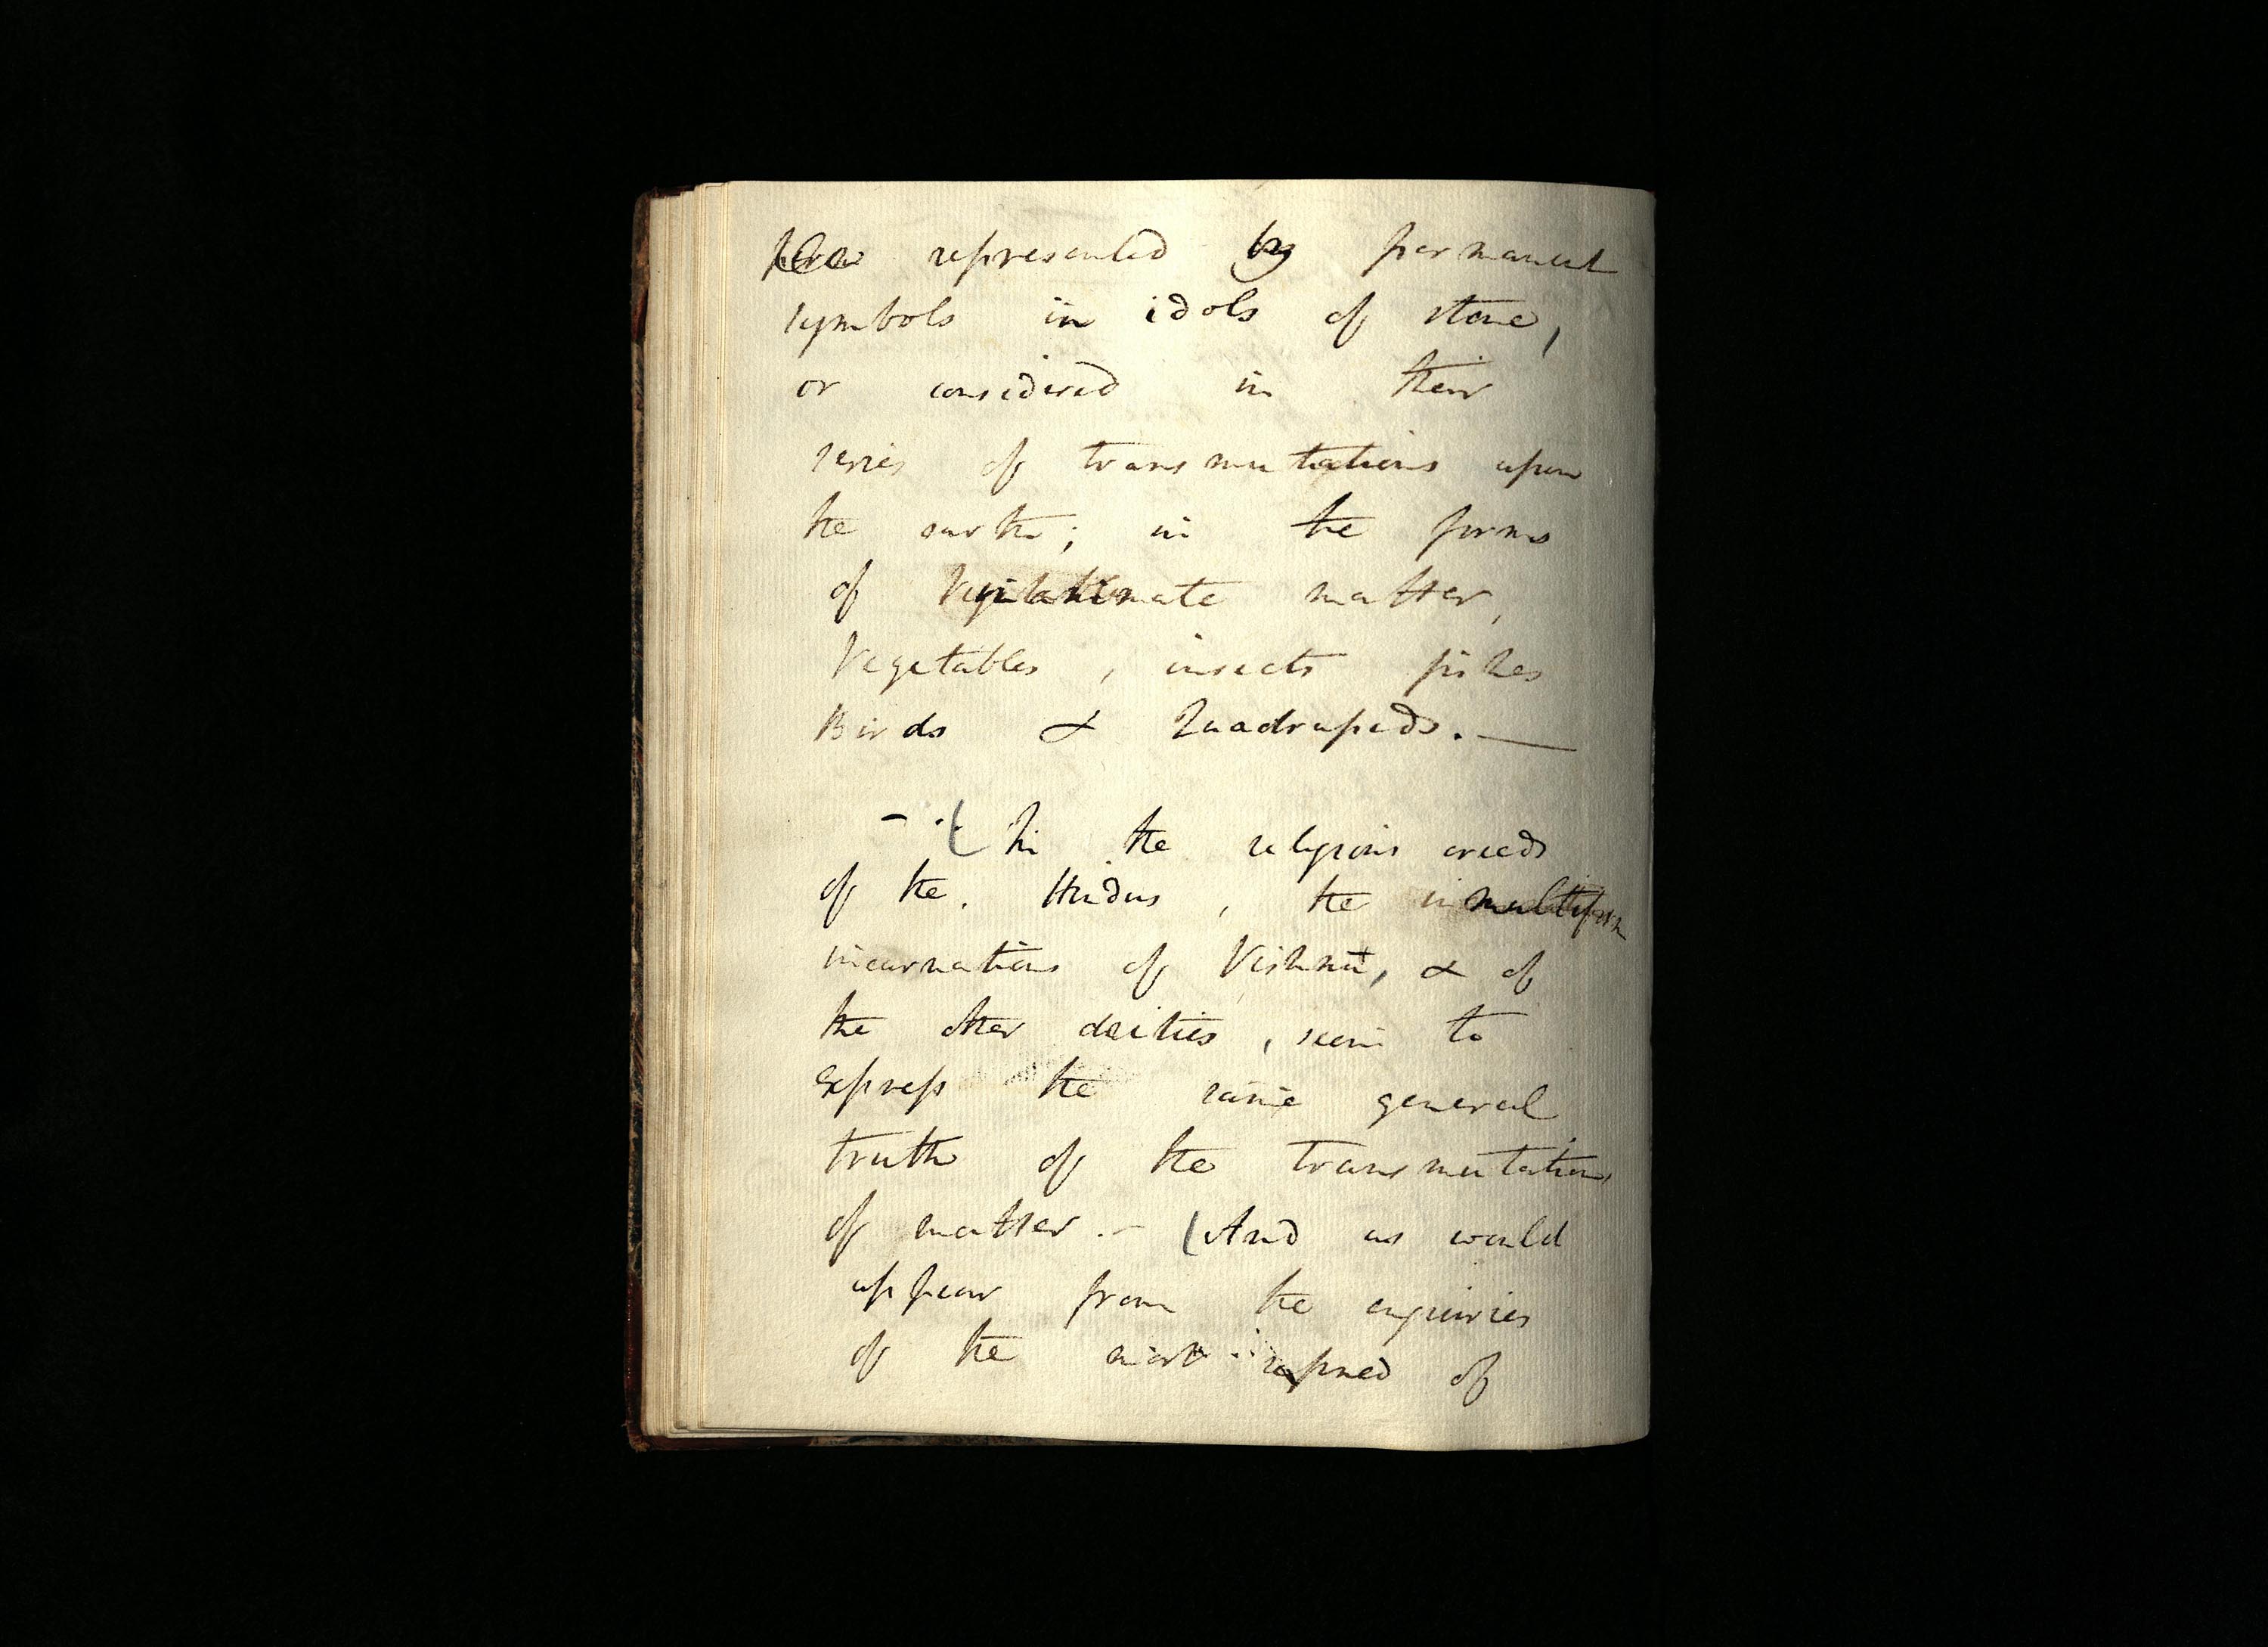 represented by permanent
symbols in idols of stone,
or considered in their
series of transmutations upon
the earth; in the forms
of inanimate matter,
Vegetables, insects fishes
Birds & Quadrupeds. —
– In the religious creeds
of the Hindus, the multiform
incarnations of Vishnu, & of
the other deities, seem to
express the same general
truth of the transmutations
of matter. – (And as would
appear from the enquiries
of the most refined of